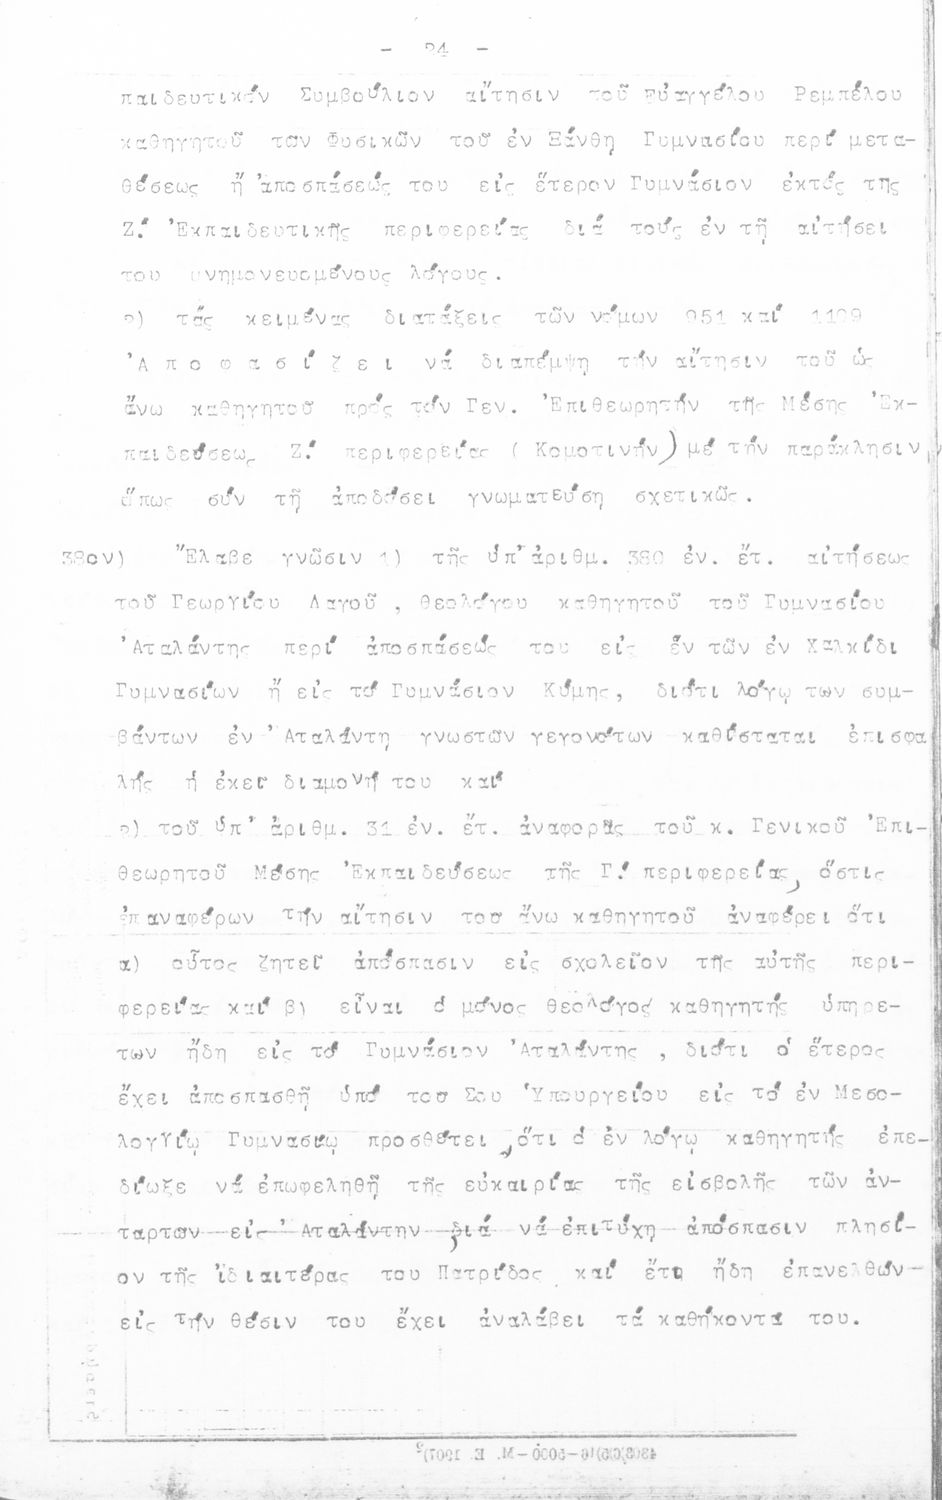 - 24 -
παιδευτικόν Συμβούλιον αἴτησιν τοῦ Εὐαγγέλου Ρεμπέλου
καθηγητοῦ των Φυσικῶν τοῦ ἐν Ξάνθη Γυμνασίου περί μετα-
θέσεως ἤ ἀποσπάσεώς του εἰς ἕτερον Γυμνάσιον ἐκτός της
Ζ.' Ἐκπαιδευτικῆς περιφερείας διά τούς ἐν τῇ αἰτήσει
του μνημονευομένους λόγους.
2) τάς κειμένας διατάξεις τῶν νόμων 951 καί 1129
Ἀποφασίζει νά διαπέμψη τήν αἴτησιν τοῦ ὡς
ἄνω καθηγητοῦ πρός τόν Γεν. Ἐπιθεωρητήν τῆς Μέσης Ἐκ-
παιδεύσεως Ζ.' περιφερείας (Κομοτινήν) μέ τήν παράκλησιν
ὅπως σύν τῇ ἀποδόσει γνωματεύση σχετικῶς.
38ον) Ἔλαβε γνῶσιν 1) τῆς ὑπ' ἀριθμ. 380 ἐν. ἔτ. αἰτήσεως
τοῦ Γεωργίου Λαγοῦ , θεολόγου καθηγητοῦ τοῦ Γυμνασίου
Ἀταλάντης περί ἀποσπάσεώς του εἰς ἕν τῶν ἐν Χαλκίδι
Γυμνασίων ἤ εἰς τό Γυμνάσιον Κύμης, διότι λόγῳ των συμ-
βάντων ἐν Ἀταλάντη γνωστῶν γεγονότων καθίσταται ἐπισφα
λής ἡ ἐκεῖ διαμονή του καί
2) τοῦ ὑπ' ἀριθμ. 31 ἐν. ἔτ. ἀναφορᾶς τοῦ κ. Γενικοῦ Ἐπι-
θεωρητοῦ Μέσης Ἐκπαιδεύσεως τῆς Γ.' περιφερείας, ὅστις
ἐπαναφέρων τήν αἴτησιν του ἄνω καθηγητοῦ ἀναφέρει ὅτι
α) οὗτος ζητεῖ ἀπόσπασιν εἰς σχολεῖον τῆς αὐτῆς περι-
φερείας καί β) εἶναι ὁ μόνος θεολόγος καθηγητής ὑπηρε-
των ἤδη εἰς τό Γυμνάσιον Ἀταλάντης , διότι ὁ ἕτερος
ἔχει ἀποσπασθῆ ὑπό του Σου Ὑπουργείου εἰς τό ἐν Μεσο-
λογγίῳ Γυμνασίῳ προσθέτει ,ὅτι ὁ ἐν λόγῳ καθηγητής ἐπε-
δίωξε νά ἐπωφεληθῆ τῆς εὐκαιρίας τῆς εἰσβολῆς τῶν ἀν-
ταρτῶν εἰς Ἀταλάντην διά νά ἐπιτύχη ἀπόσπασιν πλησί-
ον τῆς ἰδιαιτέρας του Πατρίδος καί ἔτι ἤδη ἐπανελθών
εἰς τήν θέσιν του ἔχει ἀναλάβει τά καθήκοντά του.